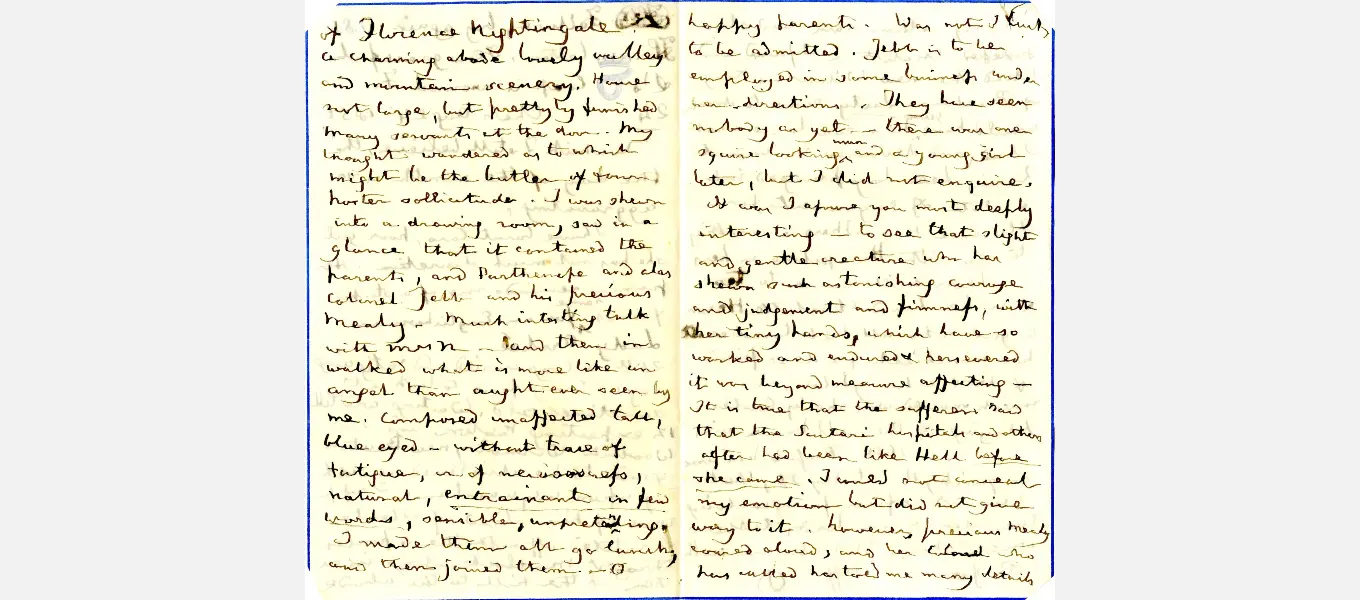 of Florence Nightingale.
a charming abode lovely valleys
and mountain scenery. House
not large, but prettyly furnished
many servants at the door. My
thought wandered as to which
might be the butler of town
hoster sollicitude. I was shewn
into a drawing room, saw in a
glance that it contained the
parents, and Parthenope and alas
Colonel Jebb and his precious
Mealy - Much intesting talk
with Mrs N - and then in
walked what is more like an
angel than aught ever seen by
me. Composed unaffected tall,
blue eyed - without trace of
fatigue, or of nervousness,
natural, entrainant in few
words, sensible, unpretending.
I made them all go lunch,
and then joined them. - O
happy parents. Was not I lucky
to be admitted. Jebb is to be
employed in some business under
her directions. They have seen
nobody as yet - there was one
squire looking man and a young girl
later, but I did not enquire.
It was I assure you most deeply
interesting - to see that slight
and gentle creature who has
shewn such astonishing courage
and judgement and firmness, with
her tiny hands, which have so
worked and endured & persevered
it was beyond measure affecting -
It is true that the sufferers said
that the Scutari hospitals and others
after had been like Hell before
she came. I could not conceal
my emotion but did not give
way to it. However, precious Mealy
aloud, and her Colonel who
has called has told me many details